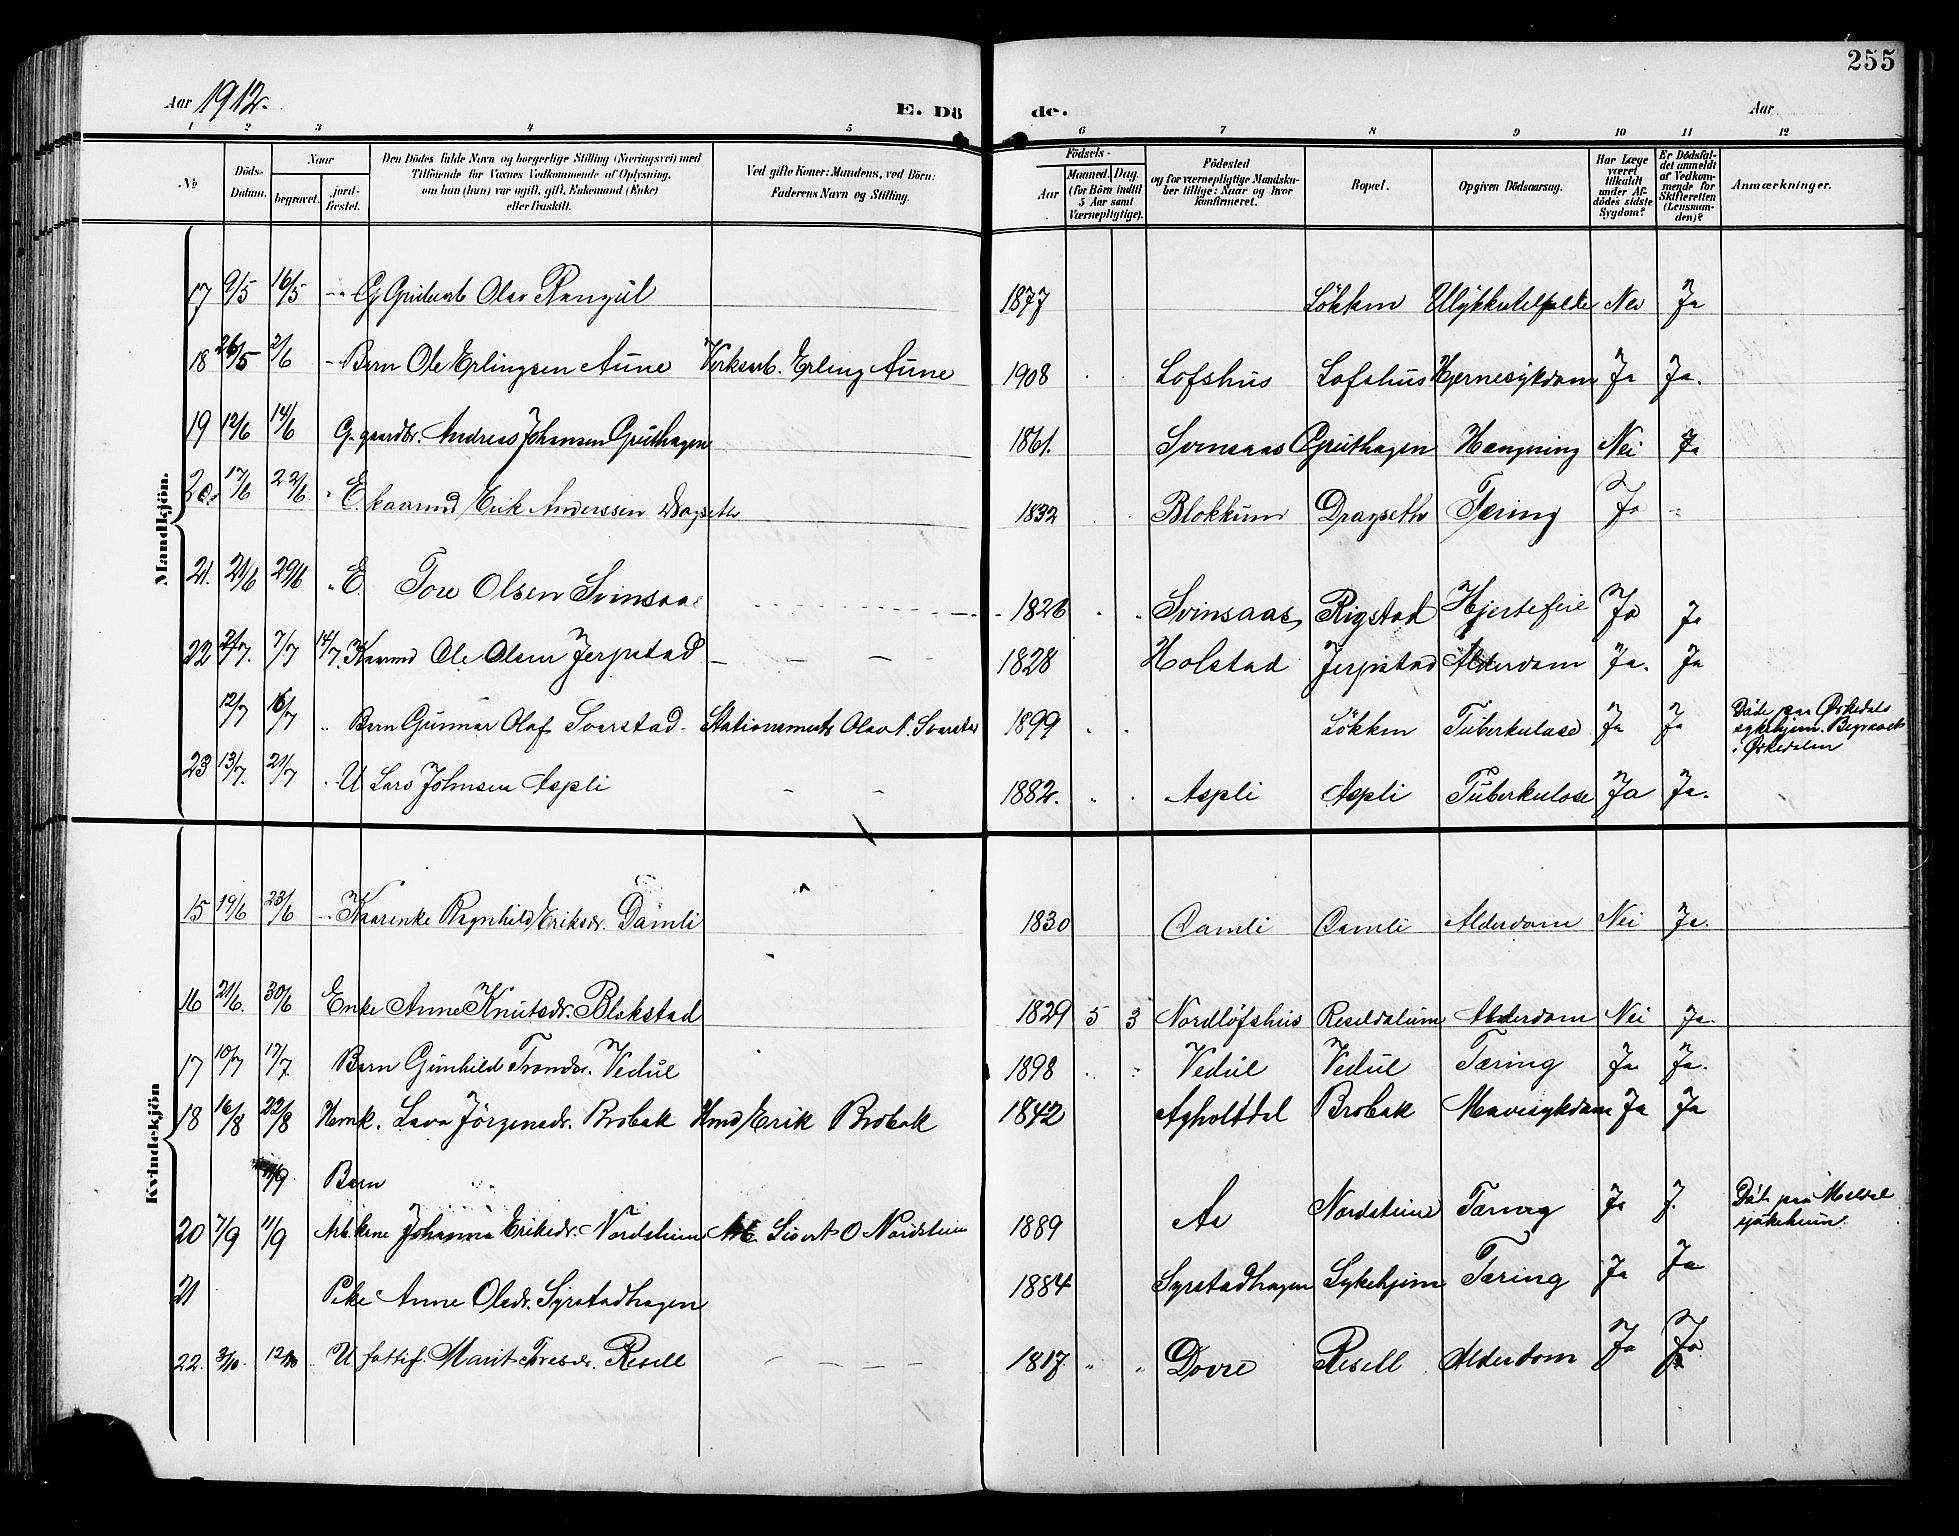 255
Aar 1912.
E. Dö de.
Aar
1 2 3 4 5 6 7 8 9 10 11 12
№
Döds-Datum.
Naar
begravet.
jord-fæstet.
Den Dödes fulde Navn og borgerlige Stilling (Næringsvei) med
Tilföiende for Voxnes Vedkommende af Oplysning,
om han (hun) var ugift, gift, Enkemand (Enke)
eller fraskilt.
Ved gifte Koner: Mandens, ved Börn:
Faderens Navn og Stilling.
Födsels-
Aar
Maaned. Dag.
(for Börn indtil
5 Aar samt
Værnepligtige).
Födested
og for værnepligtige Mandska-
ber tillige: Naar og hvor
konfirmeret.
Bopæl.
Opgiven Dödsaarsag.
Har Læge
været
tilkaldt
under Af-
dödes sidste
Sygdom?
Er Dödsfal-
det anmeldt
af Vedkom-
mende for
Skifteretten
(Lensman-
den)?
Anmærkninger.
Mandkjön.
17 9/5 16/5 G Grubearb Olav Rangul 1877 Lökken Ulykkestilfælde Nei Ja
18 26/5 2/6 Barn Ole Erlingsen Aune Verksarb. Erling Aune 1908 Lofshus Lofshus Hjernesykdom Ja Ja.
19 12/6 14/6 G. gaardbr. Andreas Johansen Gruthagen 1861. Svinsaas Gruthagen Hængning Nei Ja
20. 17/6 22/6 E. kaarmd Erik Anderssen Dragseth 1832 Blokkum Dragseth Tæring Ja
21. 21/6 29/6 E. Tore Olsen Svinsaas 1826 Svinsaas Rigstad Hjertefeil Ja Ja
22 2/7. 7/7 14/7 Kaarmd Ole Olsen Jerpstad 1828 Holstad Jerpstad Alderdom Ja. Ja
12/7 16/7 Barn Gunnar Olaf Svarstad Stationsmester Olav P. Svarstad 1899 Lökken Tuberkulose Ja Ja Död paa Örkedals
sykehjem. Begravet
i Örkedalen
23 13/7. 21/7 U Lars Johnsen Aspli 1882. Aspli Aspli Tuberkulose Ja Ja.
Kvindekjön
15 19/6 23/6 Kaarenke Ragnhild Eriksdr. Damli 1830 Damli Damli Alderdom Nei Ja.
16 21/6. 30/6 Enke Anne Knutsdr. Blokstad 1829 5 3 Nordlöfshus Reseldalum Alderdom Nei Ja.
17 10/7 17/7. Barn Gunhild Trondsdr. Vedul 1898 Vedul Vedul Tæring Ja Ja.
18 16/8 22/8 Hmk. Lava Jörgensdr. Brobak Hmd Erik Brobak 1842 Agholtdal Brobak Mavesykdom Ja Ja
11/9 Barn
20 7/9 11/9 Arb. kone Johanna Eriksdr. Nordsteim Arb. Sivert O Nordsteim 1889 Aa Nordsteim Tæring Ja J. Död paa Meldal
sykeheim
21 Pike Anne Olsdr. Syrstadhagen 1884 Syrstadhagen Sykehjem Tæring Ja Ja
22. 3/10 12/10 U fattif. Marit Toresdr. Resell 1817 Dovre Resell Alderdom Ja Ja